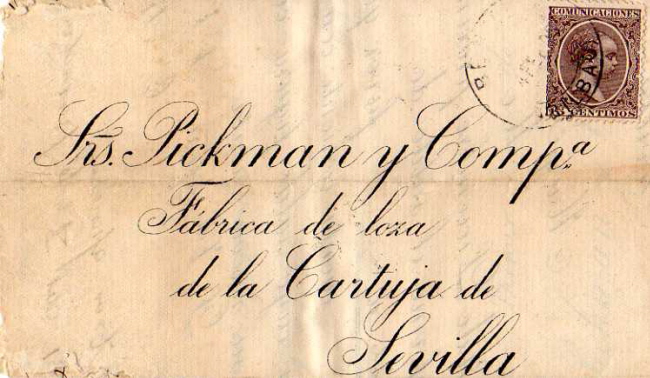 COMUNICACIONES
15 CENTIMOS
BILBAO
Srs. Pickman y Compª
Fábrica de loza
de la Cartuja de
Sevilla